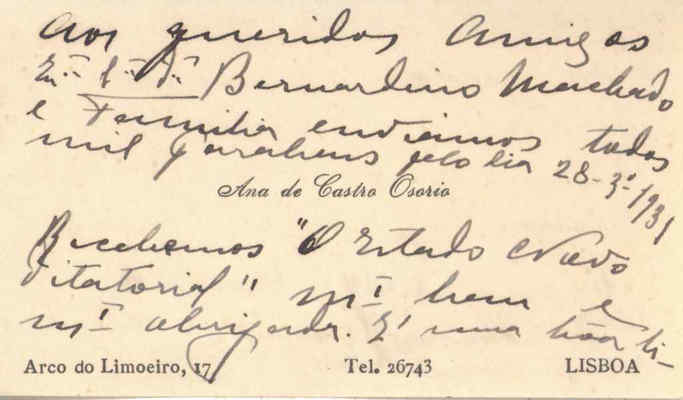 Aos queridos Amigos
Ex.mo S.r D.r Bernardino Machado
e Familia enviamos todos
mil parabens pelo dia 28-3º-1931
Ana de Castro Osorio
Recebemos "O Estado Novo
Ditatorial" m.to bem e
m.to obrigada. E' uma boa li-
Arco do Limoeiro, 17
Tel. 26743
LISBOA